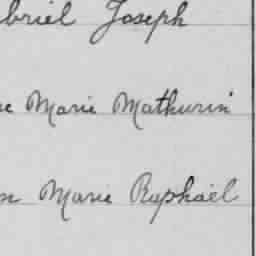 briel Joseph
e Marie Mathurin
n Marie Raphaël